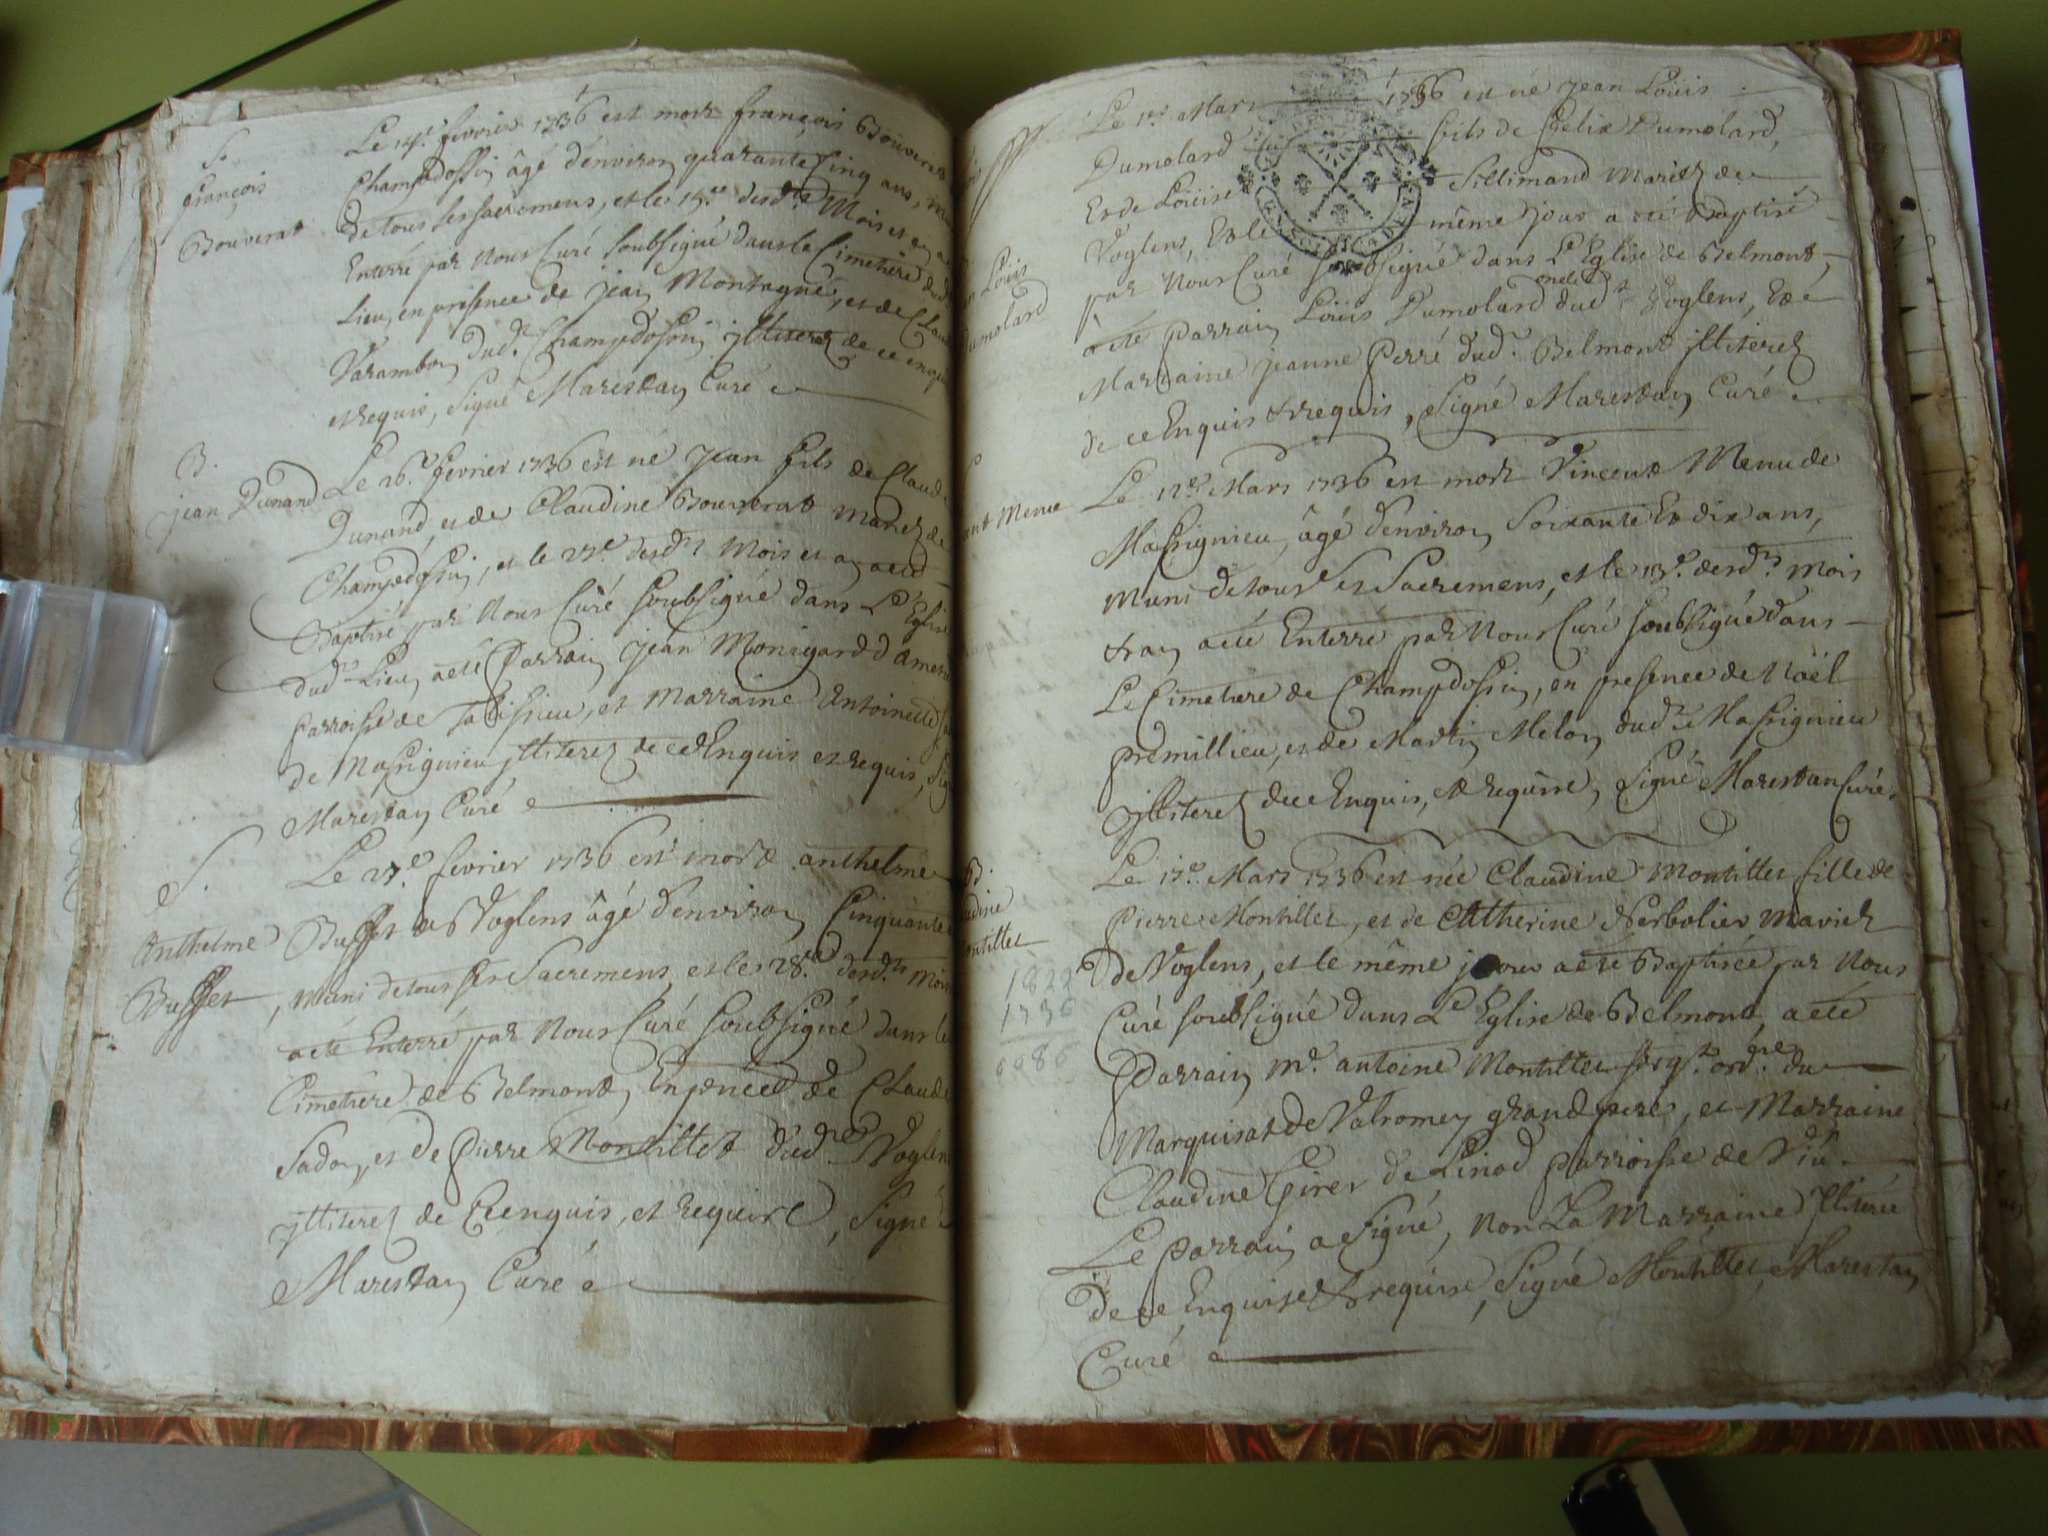 S.
françois
Bouverat
Le 14.e fevrier 1736 est mort françois Bouverat
Champdossin âgé denviron quarante Cinq ans,
de tous les sacremens, et le 15.e desd.ts Mois et an a
Enterré par Nous Curé soubsigné dans le Cimetiere dud.t
Lieu, en présence de jean Montagne, et de Claude
Varambon dud.t Champdossin jlliterez de ce enquis
et requis, Signé Marestan Curé
B.
jean Dunand
Le 26.e fevrier 1736 est né jean fils de Claude
Dunand, et de Claudine Bouverat Mariez de
Champdossin, et le 27.e desd.ts Mois et an a eté
Baptisé par Nous Curé soubsigné dans L'Eglise
dud.t Lieu, a eté Parrain jean Monigard d'
Parroisse de et Marraine Antoinette
de Massignieu jlliterez de ce Enquis et requis,
Marestan Curé
S.
Anthelme
Buffet
Le 27.e fevrier 1736 est mort anthelme
Buffet de Voglens âgé denviron Cinquante
, muni de tous ses Sacremens, et le 28.e desd.ts Mois
a eté Enterré par Nous Curé soubsigné dans le
Cimetiere de Belmont, En pnce de Claude
Sadon, et de Pierre Montillet dud.t Voglens
jlliterez de Ce enquis, et requis, Signé
Marestan Curé
Louis
Dumolard
Le Mars 1736 est né jean Loüis
Dumolard fils de felix Dumolard,
Et de Loüise Sillimand Mariez de
Voglens, Et le même jour a eté Baptisé
par Nous Curé soubsigné dans L'Eglise de Belmont,
a eté Parrain Loüis Dumolard oncle dud.t Voglens, Et
Marraine jeanne Perré dud.t Belmont jlliterez
de ce Enquis et requis, Signé Marestan Curé
Menu
Le 12.e Mars 1736 est mort Vincent Menu de
Massignieu, âgé denviron Soixante Et dix ans,
Muni de tous les Sacremens, et le 13.e desd.ts Mois
et an a eté Enterré par Nous Curé soubsigné dans
Le Cimetiere de Champdossin, en presence de Noël
Premillieu, et de Martin Melon dud.t Massignieu
jlliterez de ce Enquis, et requis, Signé Marestan Curé
B.
Claudine
Montillet
1822
1736
0086
Le 15.e Mars 1736 est née Claudine Montillet fille de
Pierre Montillet, et de Catherine Nerbolier Mariez
de Voglens, et le même jour a eté Baptisée par Nous
Curé soubsigné dans L'Eglise de Belmont, a eté
Parrain M.e antoine Montillet serg.t ord.re du
Marquisat de Valromey grand pere, et Marraine
Claudine Girer de Linod parroisse de Viu
Le Parrain a Signé, Non La Marraine jlliterée
de ce Enquise et requise, Signé Montillet, Marestan
Curé